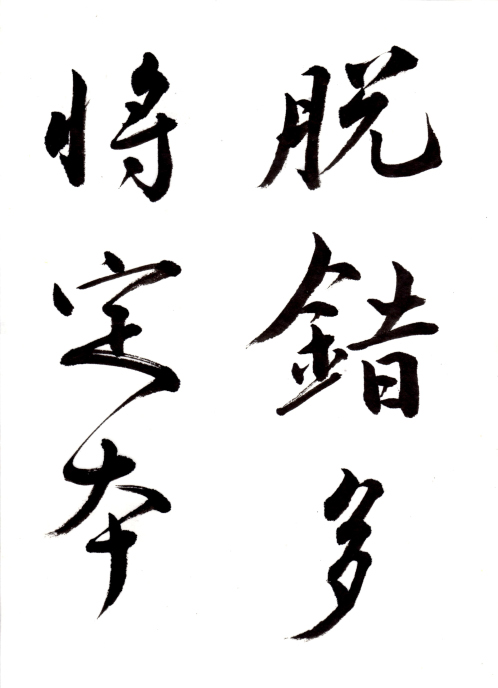 脱錯多
将定本